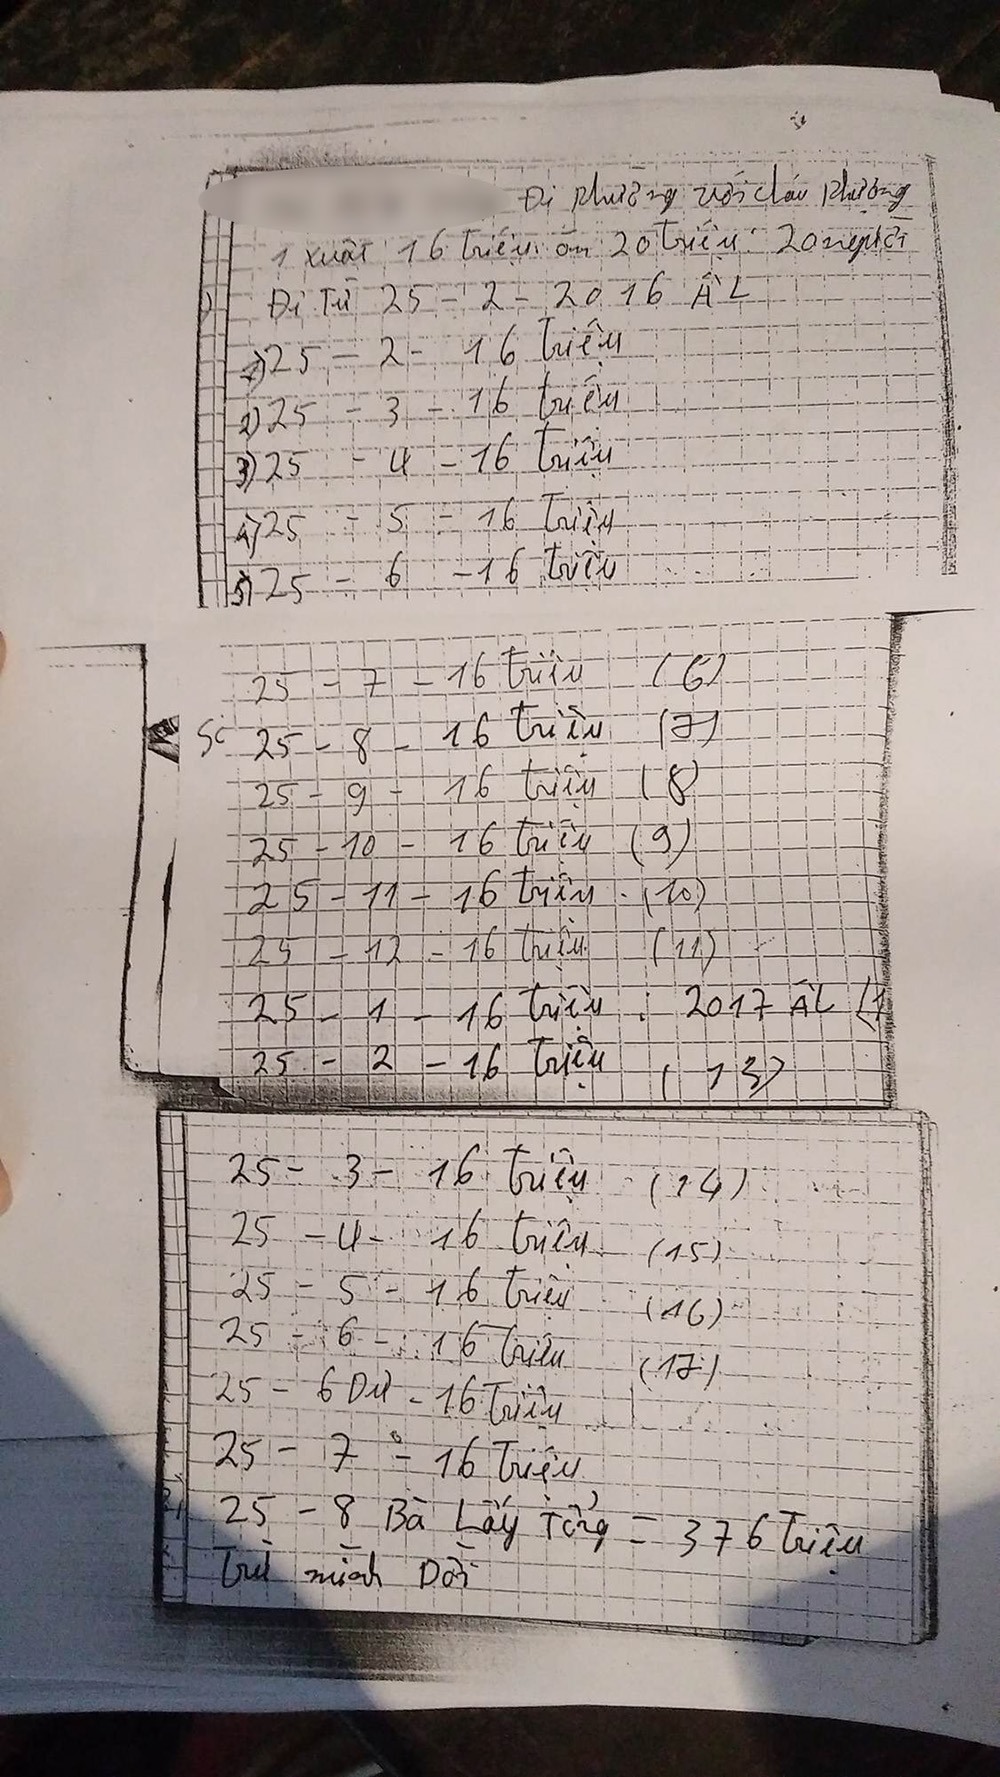 Đi phường với cháu phượng
1 xuất 16 triệu ăn 20 triệu: 20 người
Đi Từ 25 - 2 - 2016 ÂL
1) 25 - 2 - 16 triệu
2) 25 - 3 - 16 triệu
3) 25 - 4 - 16 triệu
4) 25 - 5 - 16 triệu
5) 25 - 6 - 16 triệu
25 - 7 - 16 triệu (6)
25 - 8 - 16 triệu (7)
25 - 9 - 16 triệu (8
25 - 10 - 16 triệu (9)
25 - 11 - 16 triệu (10)
25 - 12 - 16 triệu (11)
25 - 1 - 16 triệu : 2017 ÂL (1
25 - 2 - 16 triệu (13)
25 - 3 - 16 triệu (14)
25 - 4 - 16 triệu (15)
25 - 5 - 16 triệu (16)
25 - 6 - 16 triệu (17)
25 - 6 Dư - 16 triệu
25 - 7 - 16 triệu
25 - 8 Bà Lấy Tổng = 376 triệu
trừ mình Dồi